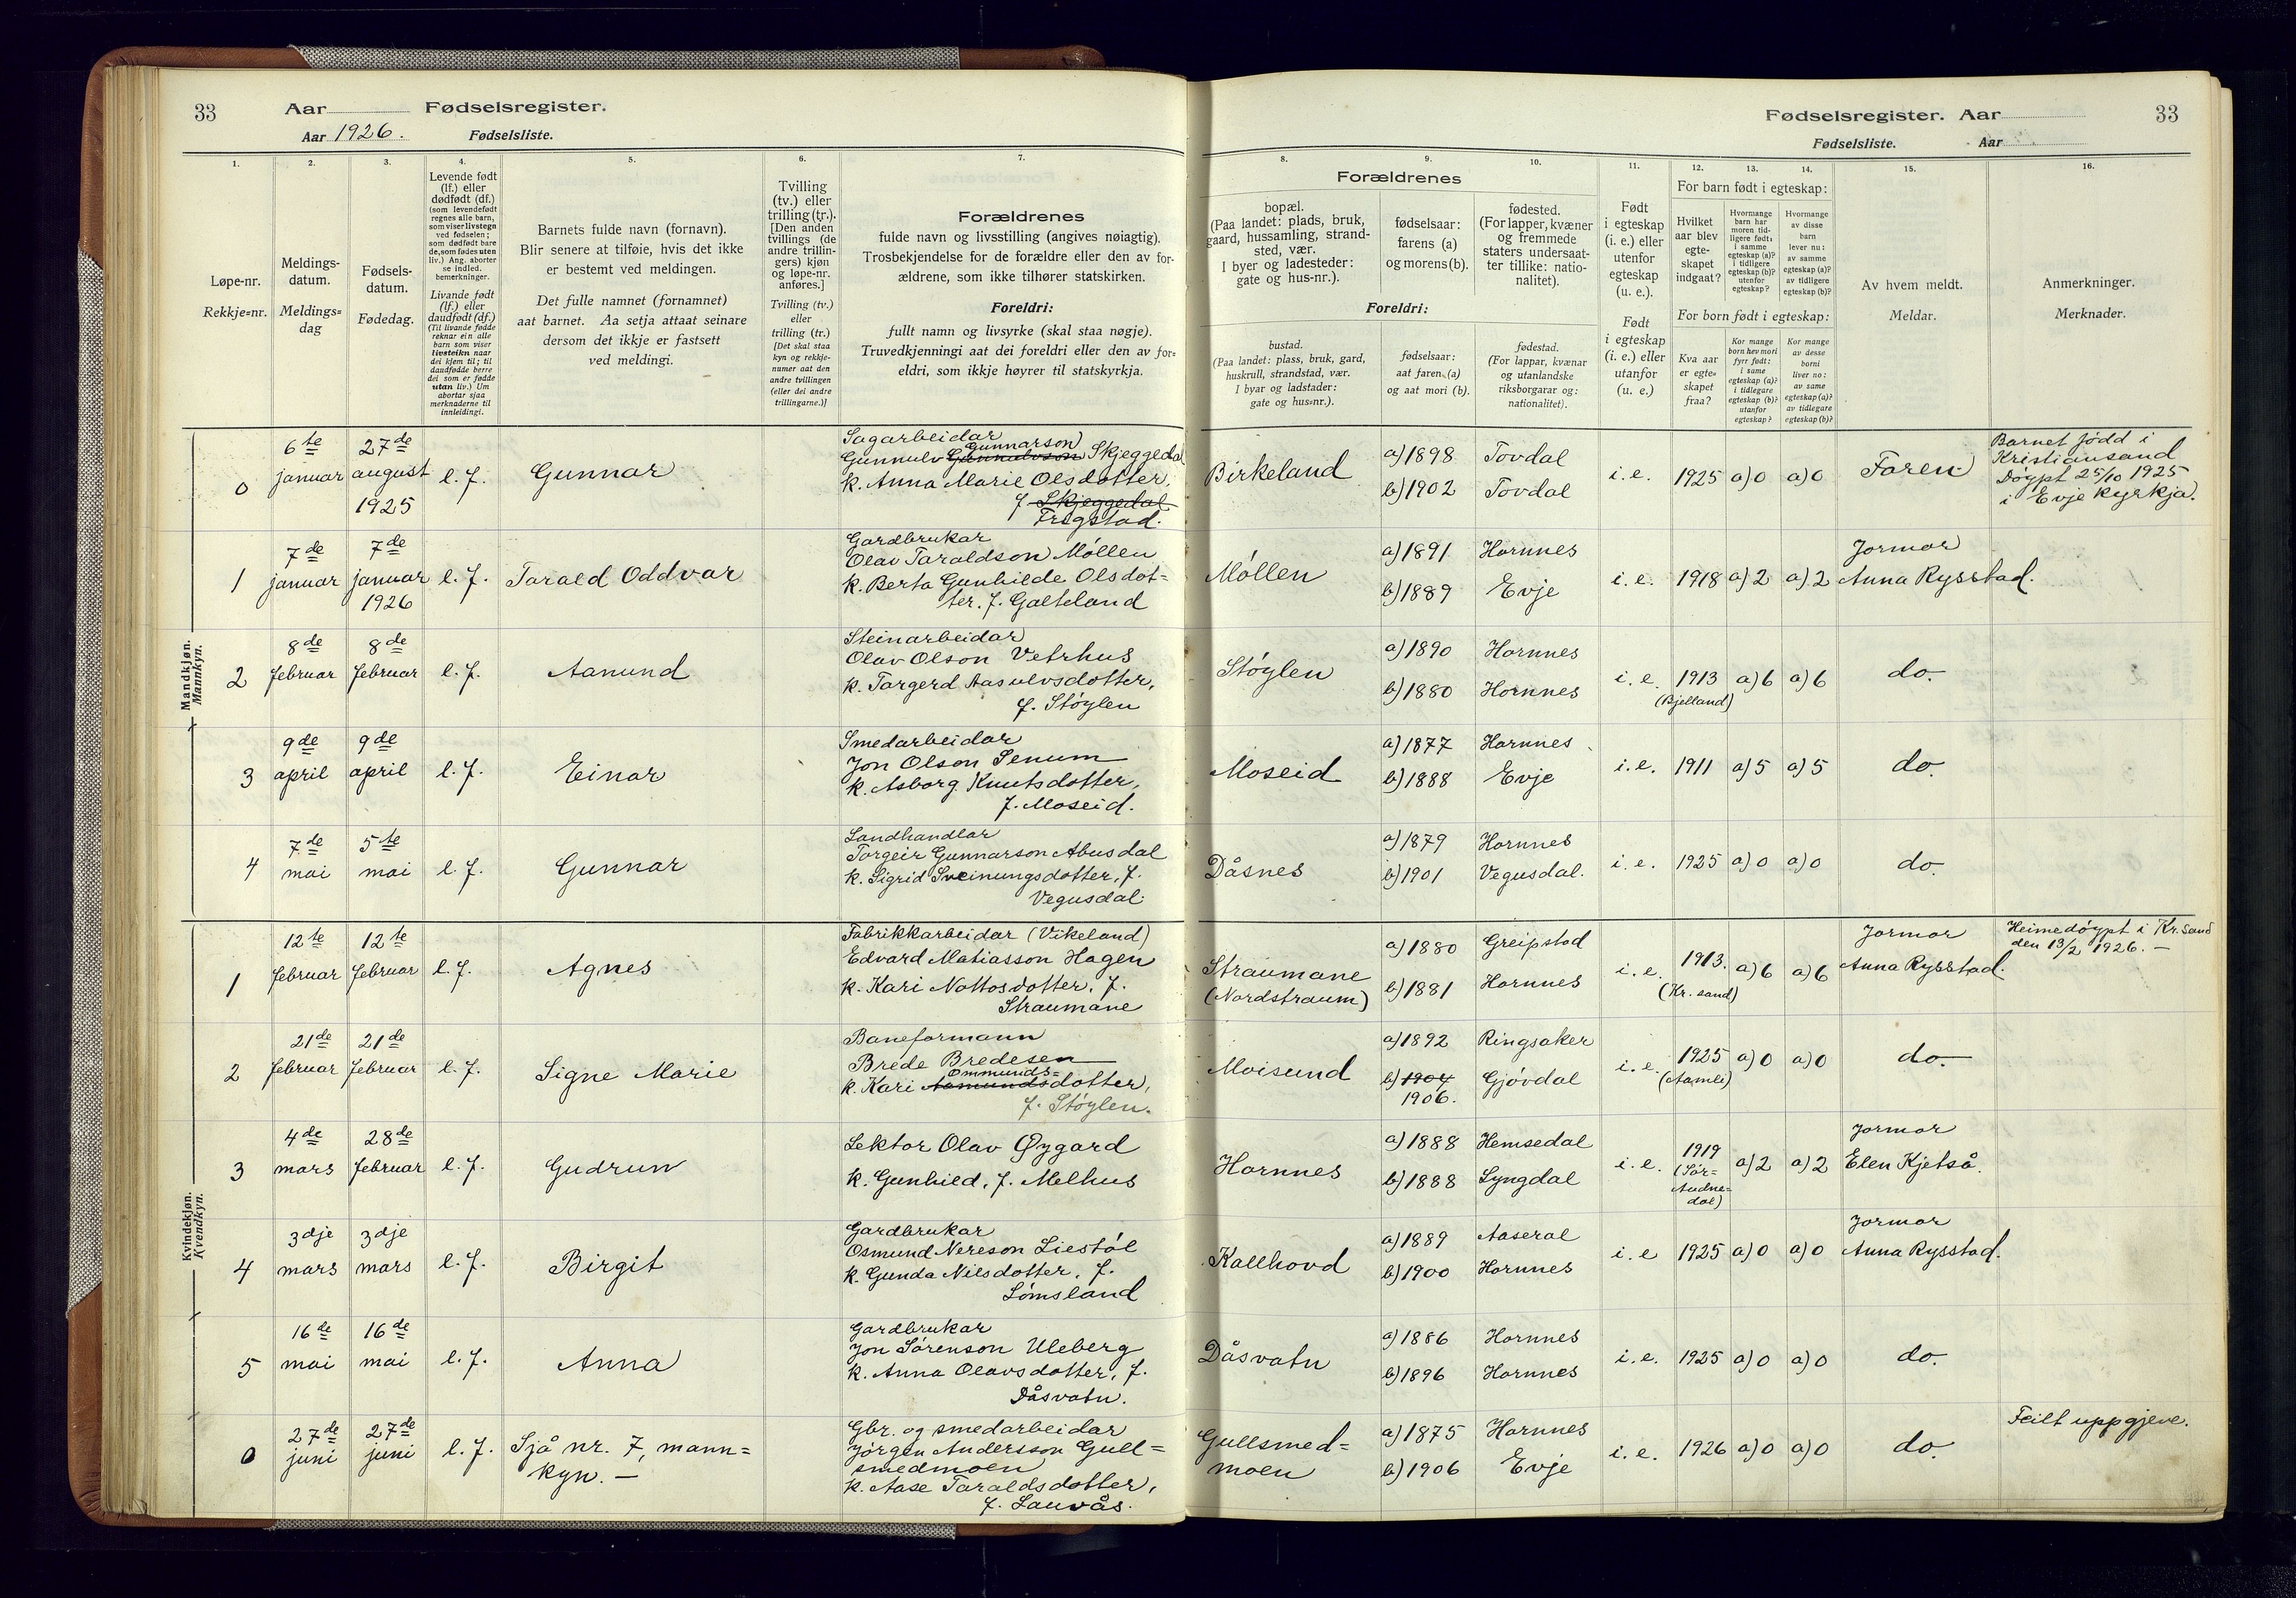 33 Aar Fødselsregister.
Aar 1926. Fødselsliste.
Fødselsregister. Aar 33
Fødselsliste. Aar
1. 2. 3. 4. 5. 6. 7.
Løpe-nr.
Rekkje=nr.
Meldings-
datum.
Meldings=
dag
Fødsels-
datum.
Fødedag.
Levende født
(lf.) eller
dødfødt (df.)
(som levendefødt
regnes alle barn,
som viser livstegn
ved fødselen;
som dødfødt bare
de, som fødes uten
liv.) Ang. aborter
se indled.
bemerkninger.
Livande født
(lf.) eller
daudfødt (df.)
(Til livande fødde
reknar ein alle
barn som viser
livsteikn naar
dei kjem til; til
daudfødde berre
dei som er fødde
utan liv.) Um
abortar sjaa
merknaderne til
innleidingi.
Barnets fulde navn (fornavn).
Blir senere at tilføie, hvis det ikke
er bestemt ved meldingen.
Det fulle namnet (fornamnet)
aat barnet. Aa setja attaat seinare
dersom det ikkje er fastsett
ved meldingi.
Tvilling
(tv.) eller
trilling (tr.).
[Den anden
tvillings (de
andre trillin-
gers) kjøn
og løpe-nr.
anføres.]
Tvilling (tv.)
eller
trilling (tr.)
[Det skal staa
kyn og rekkje-
numer aat den
andre tvillingen
(eller dei andre
trillingarne.)]
Forældrenes
fulde navn og livsstilling (angives nøiagtig).
Trosbekjendelse for de forældre eller den av for-
ældrene, som ikke tilhører statskirken.
Foreldri:
fullt namn og livsyrke (skal staa nøgje).
Truvedkjenningi aat dei foreldri eller den av for=
eldri, som ikkje høyrer til statskyrkja.
8. 9. 10. 11. 12. 13. 14. 15. 16.
Forældrenes
bopæl.
(Paa landet: plads, bruk,
gaard, hussamling, strand-
sted, vær.
I byer og ladesteder:
gate og hus-nr.).
fødselsaar:
farens (a)
og morens (b).
fødested.
(For lapper, kvæner
og fremmede
staters undersaat-
ter tillike: natio-
nalitet).
Foreldri:
bustad.
(Paa landet: plass, bruk, gard,
huskrull, strandstad, vær.
I byar og ladstader:
gate og hus=nr.).
fødselsaar:
aat faren (a)
og aat mori (b).
fødestad.
(For lappar, kvænar
og utanlandske
riksborgarar og:
nationalitet).
Født
i egteskap
(i. e.) eller
utenfor
egteskap
(u. e.).
Født
i egteskap
(i. e.) eller
utanfor
(u. e.)
For barn født i egteskap:
Hvilket
aar blev
egte-
skapet
indgaat?
Hvormange
barn har
moren tid-
ligere født:
i samme
egteskap (a)?
i tidligere
egteskap (b)?
utenfor
egteskap?
Hvormange
av disse
barn
lever nu:
av samme
egteskap (a)?
av tidligere
egteskap (b)?
For born født i egteskap:
Kva aar
er egte=
skapet
fraa?
Kor mange
born hev mori
fyrr født:
i same
egteskap (a)?
i tidlegare
egteskap (b)?
utanfor
egteskap?
Kor mange
av desse
borni
liver no:
av same
egteskap (a)?
av tidlegare
egteskap (b)?
Av hvem meldt.
Meldar.
Anmerkninger.
Merknader.
Mandkjøn.
Mannkyn.
0
6te
januar
27de
august
1925
l. f.
Gunnar
Sagarbeidar
Gunnarson
Gunnulv Gunnulvson Skjeggedal
k. Anna Marie Olsdotter,
f Skjeggedal
Trygstad.
Birkeland
a) 1898 Tovdal
b) 1902 Tovdal
i. e. 1925 a) 0 a) 0
Faren
Barnet fødd i
Kristiansand
Døypt 25/10 1925
i Evje kyrkja.
1
7de
januar
7de
januar
1926
l. f.
Tarald Oddvar
Gardbrukar
Olav Taraldson Møllen
k. Berta Gunhilde Olsdot=
ter. f. Galteland
Møllen
a) 1891 Hornnes
b) 1889 Evje
i. e. 1918 a) 2 a) 2
Jormor
Anna Rysstad.
2
8de
februar
8de
februar
l. f.
Aamund
Steinarbeidar
Olav Olson Vetrhus
k. Targerd Aasulvsdotter,
f. Støylen
Støylen
a) 1890 Hornnes
b) 1880 Hornnes
i. e. 1913 a) 6 a) 6
(Bjelland)
do.
3
9de
april
9de
april
l. f.
Einar
Smedarbeidar
Jon Olson Senum
k. Asborg Knutsdotter,
f. Moseid.
Moseid
a) 1877 Hornnes
b) 1888 Evje
i. e. 1911 a) 5 a) 5
do.
4
7de
mai
5te
mai
l. f.
Gunnar
Landhandlar
Torgeir Gunnarson Abusdal
k. Sigrid Sveinungsdotter, f.
Vegusdal.
Dåsnes
a) 1879 Hornnes
b) 1901 Vegusdal.
i. e. 1925 a) 0 a) 0
do.
Kvindekjøn.
Kvendkyn.
1
12te
februar
12te
februar
l. f.
Agnes
Fabrikkarbeidar (Vikeland)
Edvard Matiasson Hagen
k. Kari Nottosdotter, f.
Straumane
Straumane
(Nordstraum)
a) 1880 Greipstad
b) 1881 Hornnes
i. e. 1913. a) 6 a) 6
(Kr. sand)
Jormor
Anna Rysstad.
Heimedøypt i Kr. sand
den 13/2 1926. –
2
21de
februar
21de
februar
l. f.
Signe Marie
Baneformann
Brede Bredesen
Ommunds=
k. Kari Aamundsdotter,
f. Støylen.
Moisund
a) 1892 Ringsaker
b) 1904 Gjøvdal
1906.
i. e. 1925 a) 0 a) 0
(Aamli)
do.
3
4de
mars
28de
februar
l. f.
Gudrun
Lektor Olav Øygard
k. Gunhild, f. Melhus
Hornnes
a) 1888 Hemsedal
b) 1888 Lyngdal
i. e. 1919 a) 2 a) 2
(Sør=
Audne=
dal)
Jormor
Elen Kjetså.
4
3dje
mars
3dje
mars
l. f.
Birgit
Gardbrukar
Osmund Nereson Liestøl
k. Gunda Nilsdotter, f.
Lømsland
Kallhovd
a) 1889 Aaseral
b) 1900 Hornnes
i. e 1925 a) 0 a) 0
Jormor
Anna Rysstad.
5
16de
mai
16de
mai
l. f.
Anna
Gardbrukar
Jon Sørenson Uleberg
k. Anna Olavsdotter, f.
Dåsvatn.
Dåsvatn
a) 1886 Hornnes
b) 1896 Hornnes
i. e. 1925 a) 0 a) 0
do.
0
27de
juni
27de
juni
l. f.
Sjå nr. 7, mann=
kyn. –
Gbr. og smedarbeidar
Jørgen Andersson Gull=
smedmoen
k. Aase Taraldsdotter,
f. Lauvås.
Gullsmed=
moen
a) 1875 Hornnes
b) 1906 Evje
i. e. 1926 a) 0 a) 0
do.
Feilt uppgjeve.